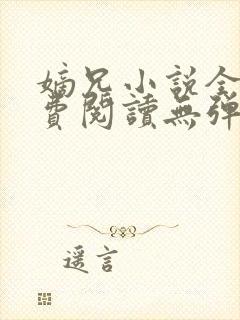 嫡兄小說全
費閱讀無彈
遥言